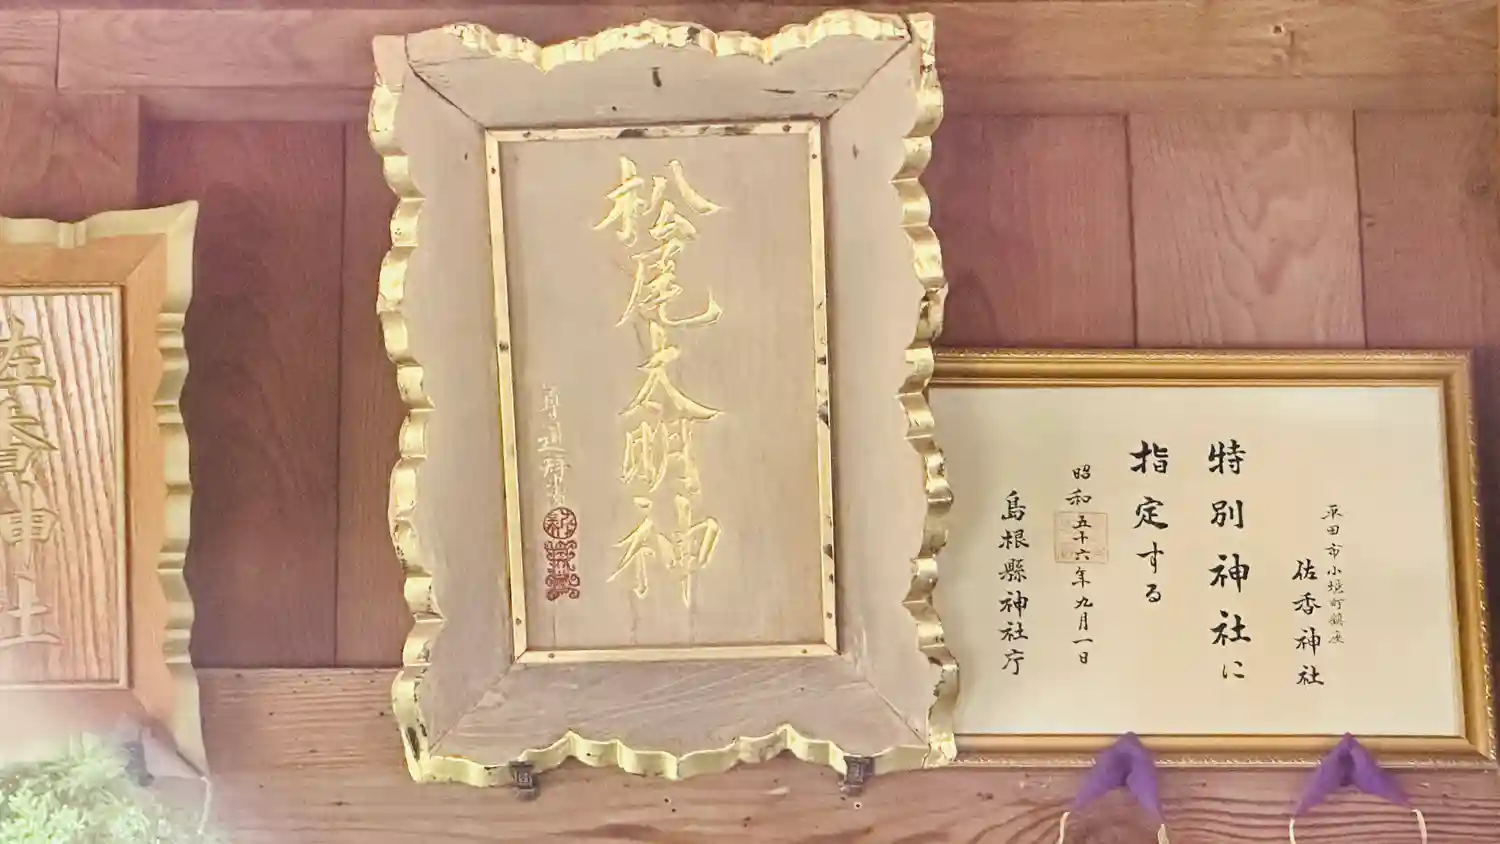 平田市小境町鎮座
佐香神社
特別神社に
指定する
昭和五十六年九月一日
島根縣神社庁
松尾大明神
佐香神社